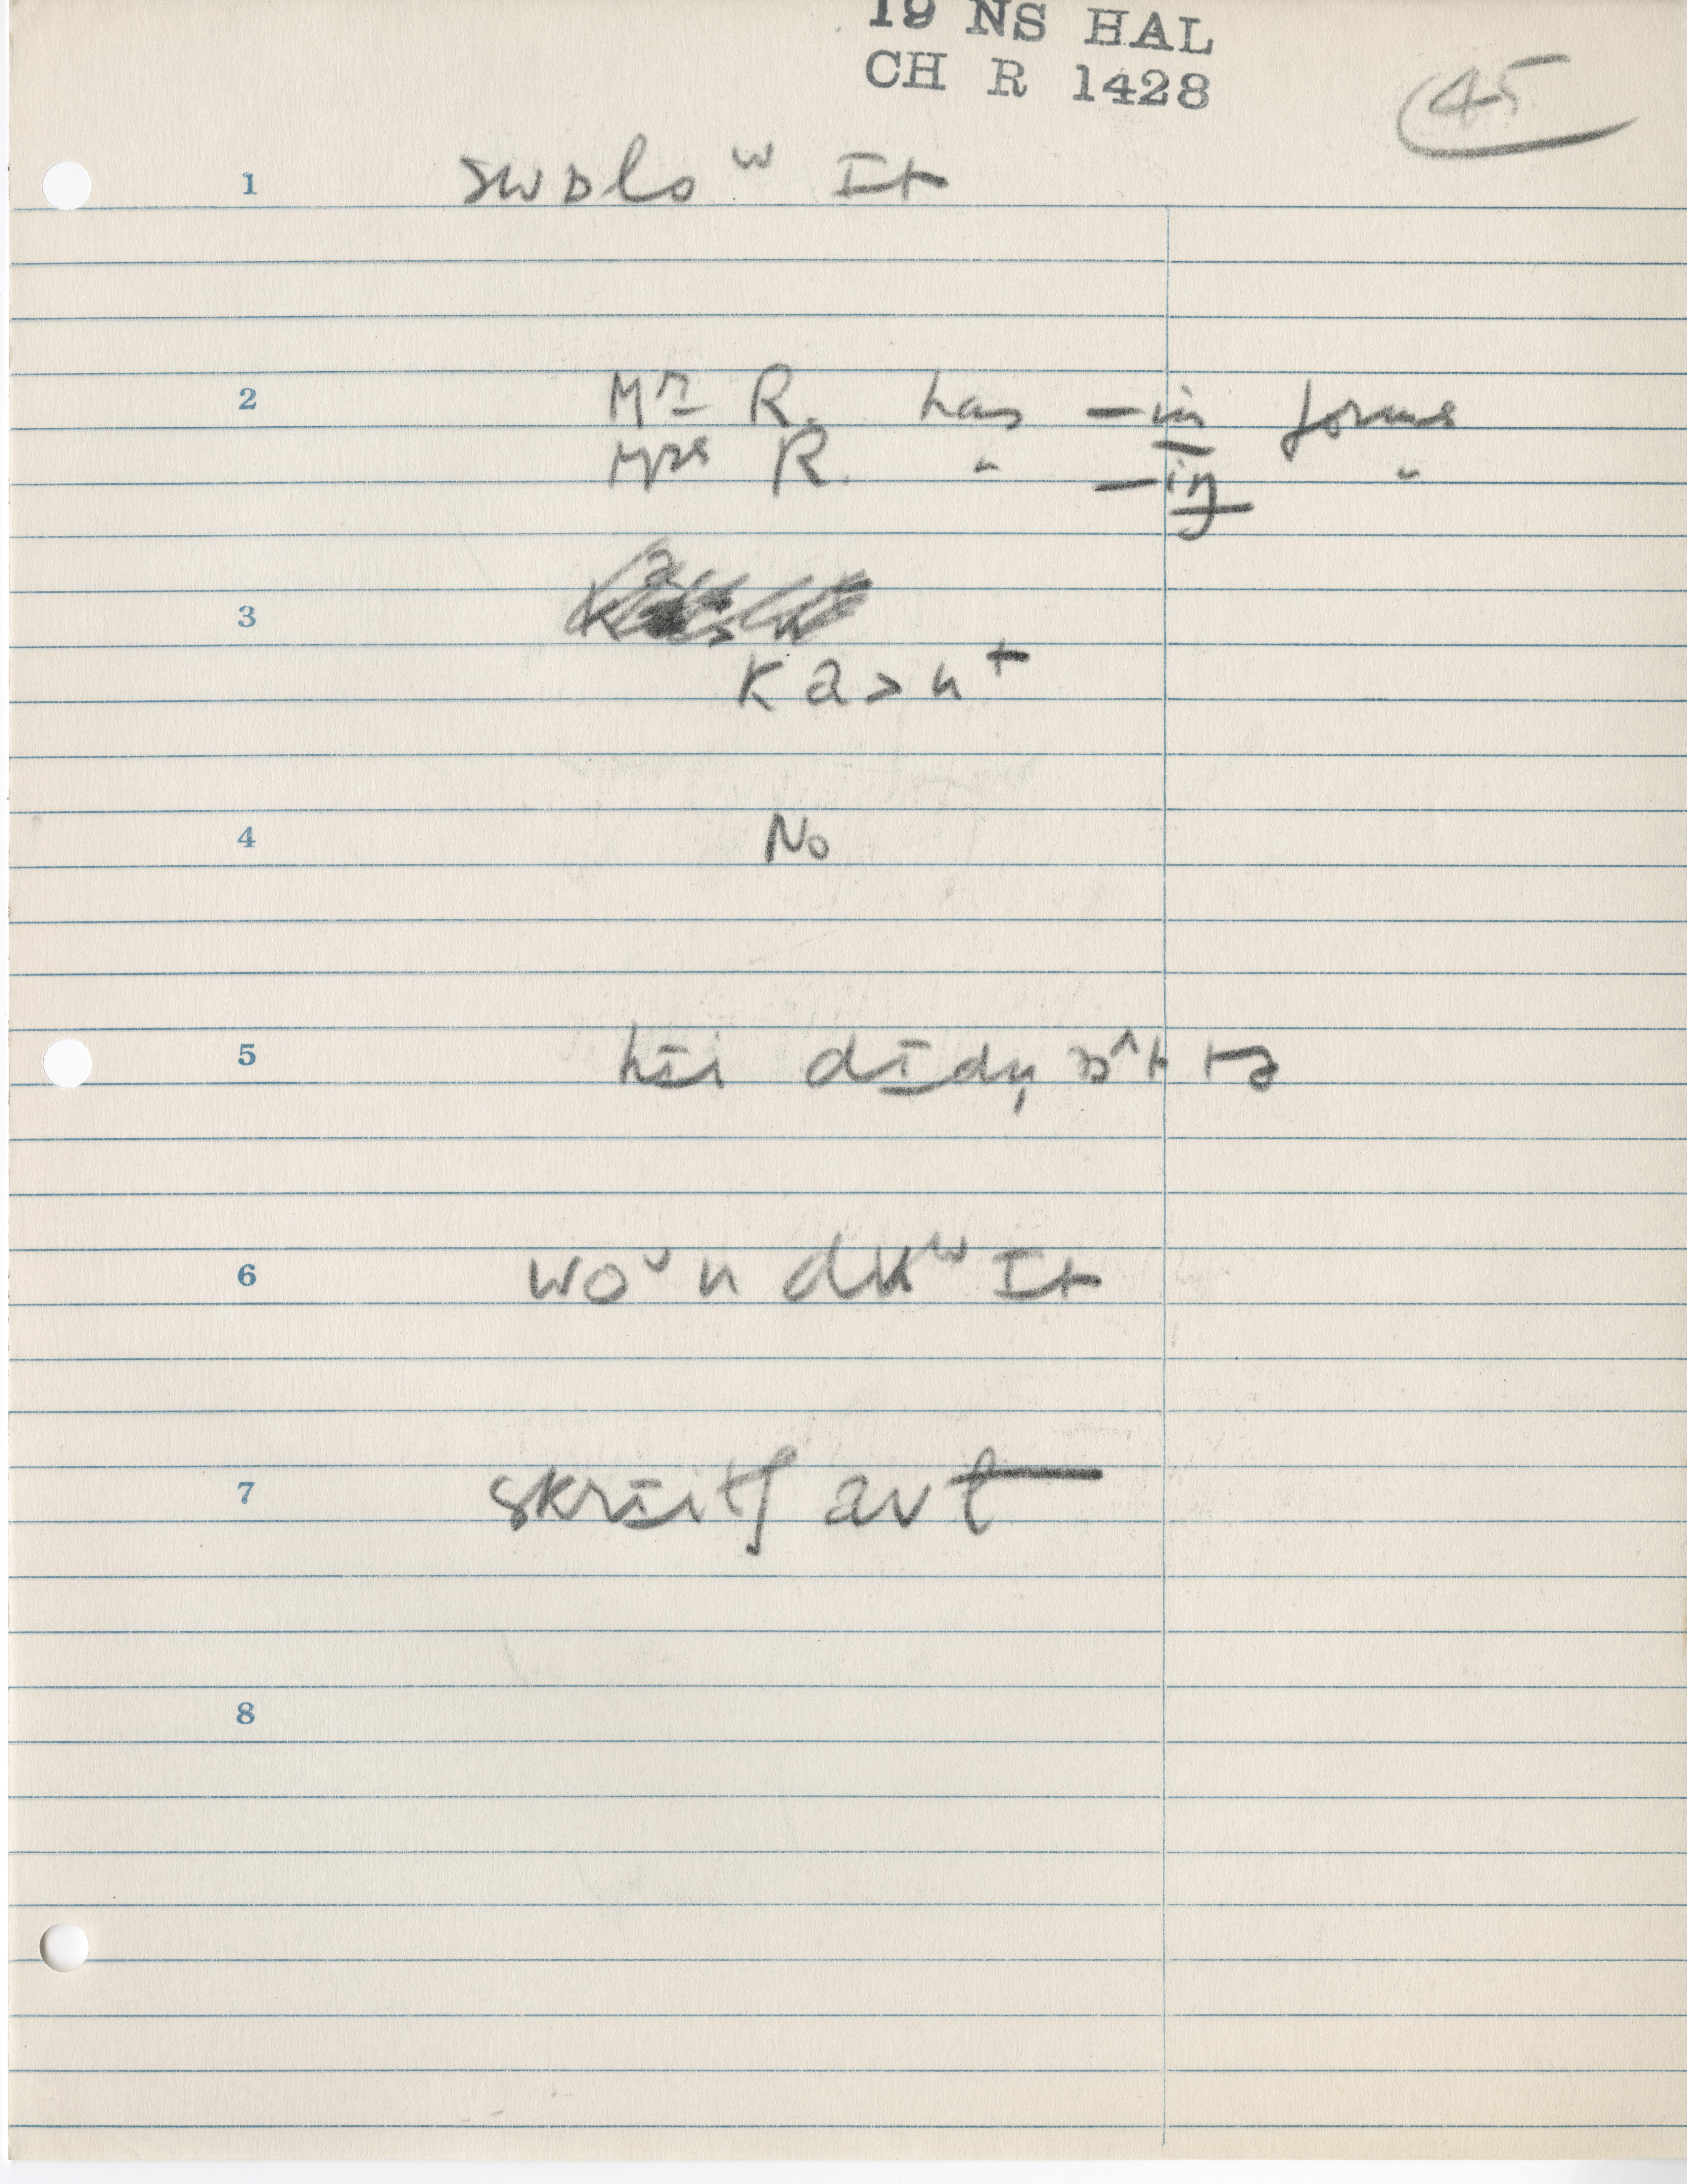 19 NS HAL
CH R 1428
45
1 swɒloʷ ɪt
2 Mr R. has –in forms
Mrs R. " –iŋ "
3
ka>nt
4 No
5 hɪi dɪdn̩ ɒ^t tə
6 woᴜn duʷ ɪt
7 skrɪitʃ aʊt
8